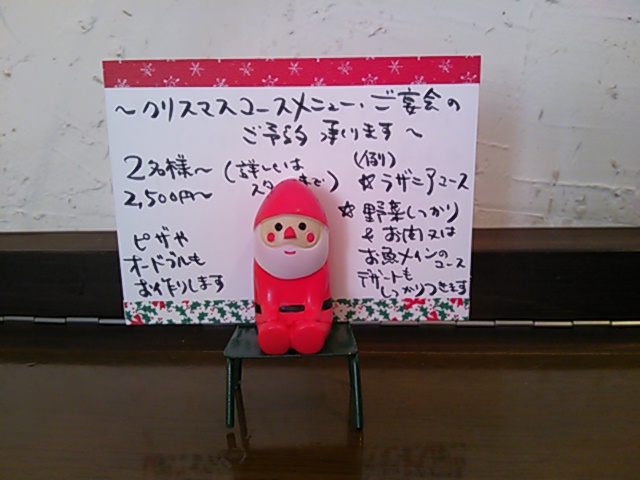 ～クリスマスコースメニュー・ご宴会の
ご予約 承ります～
2名様～
2,500円～
(詳しくは
スタ まで)
ピザや
オードブルも
お作りします
(例)
☆ラザニアコース
☆野菜しっかり
& お肉又は
お魚メインの
コース
デザートも
しっかりつきます